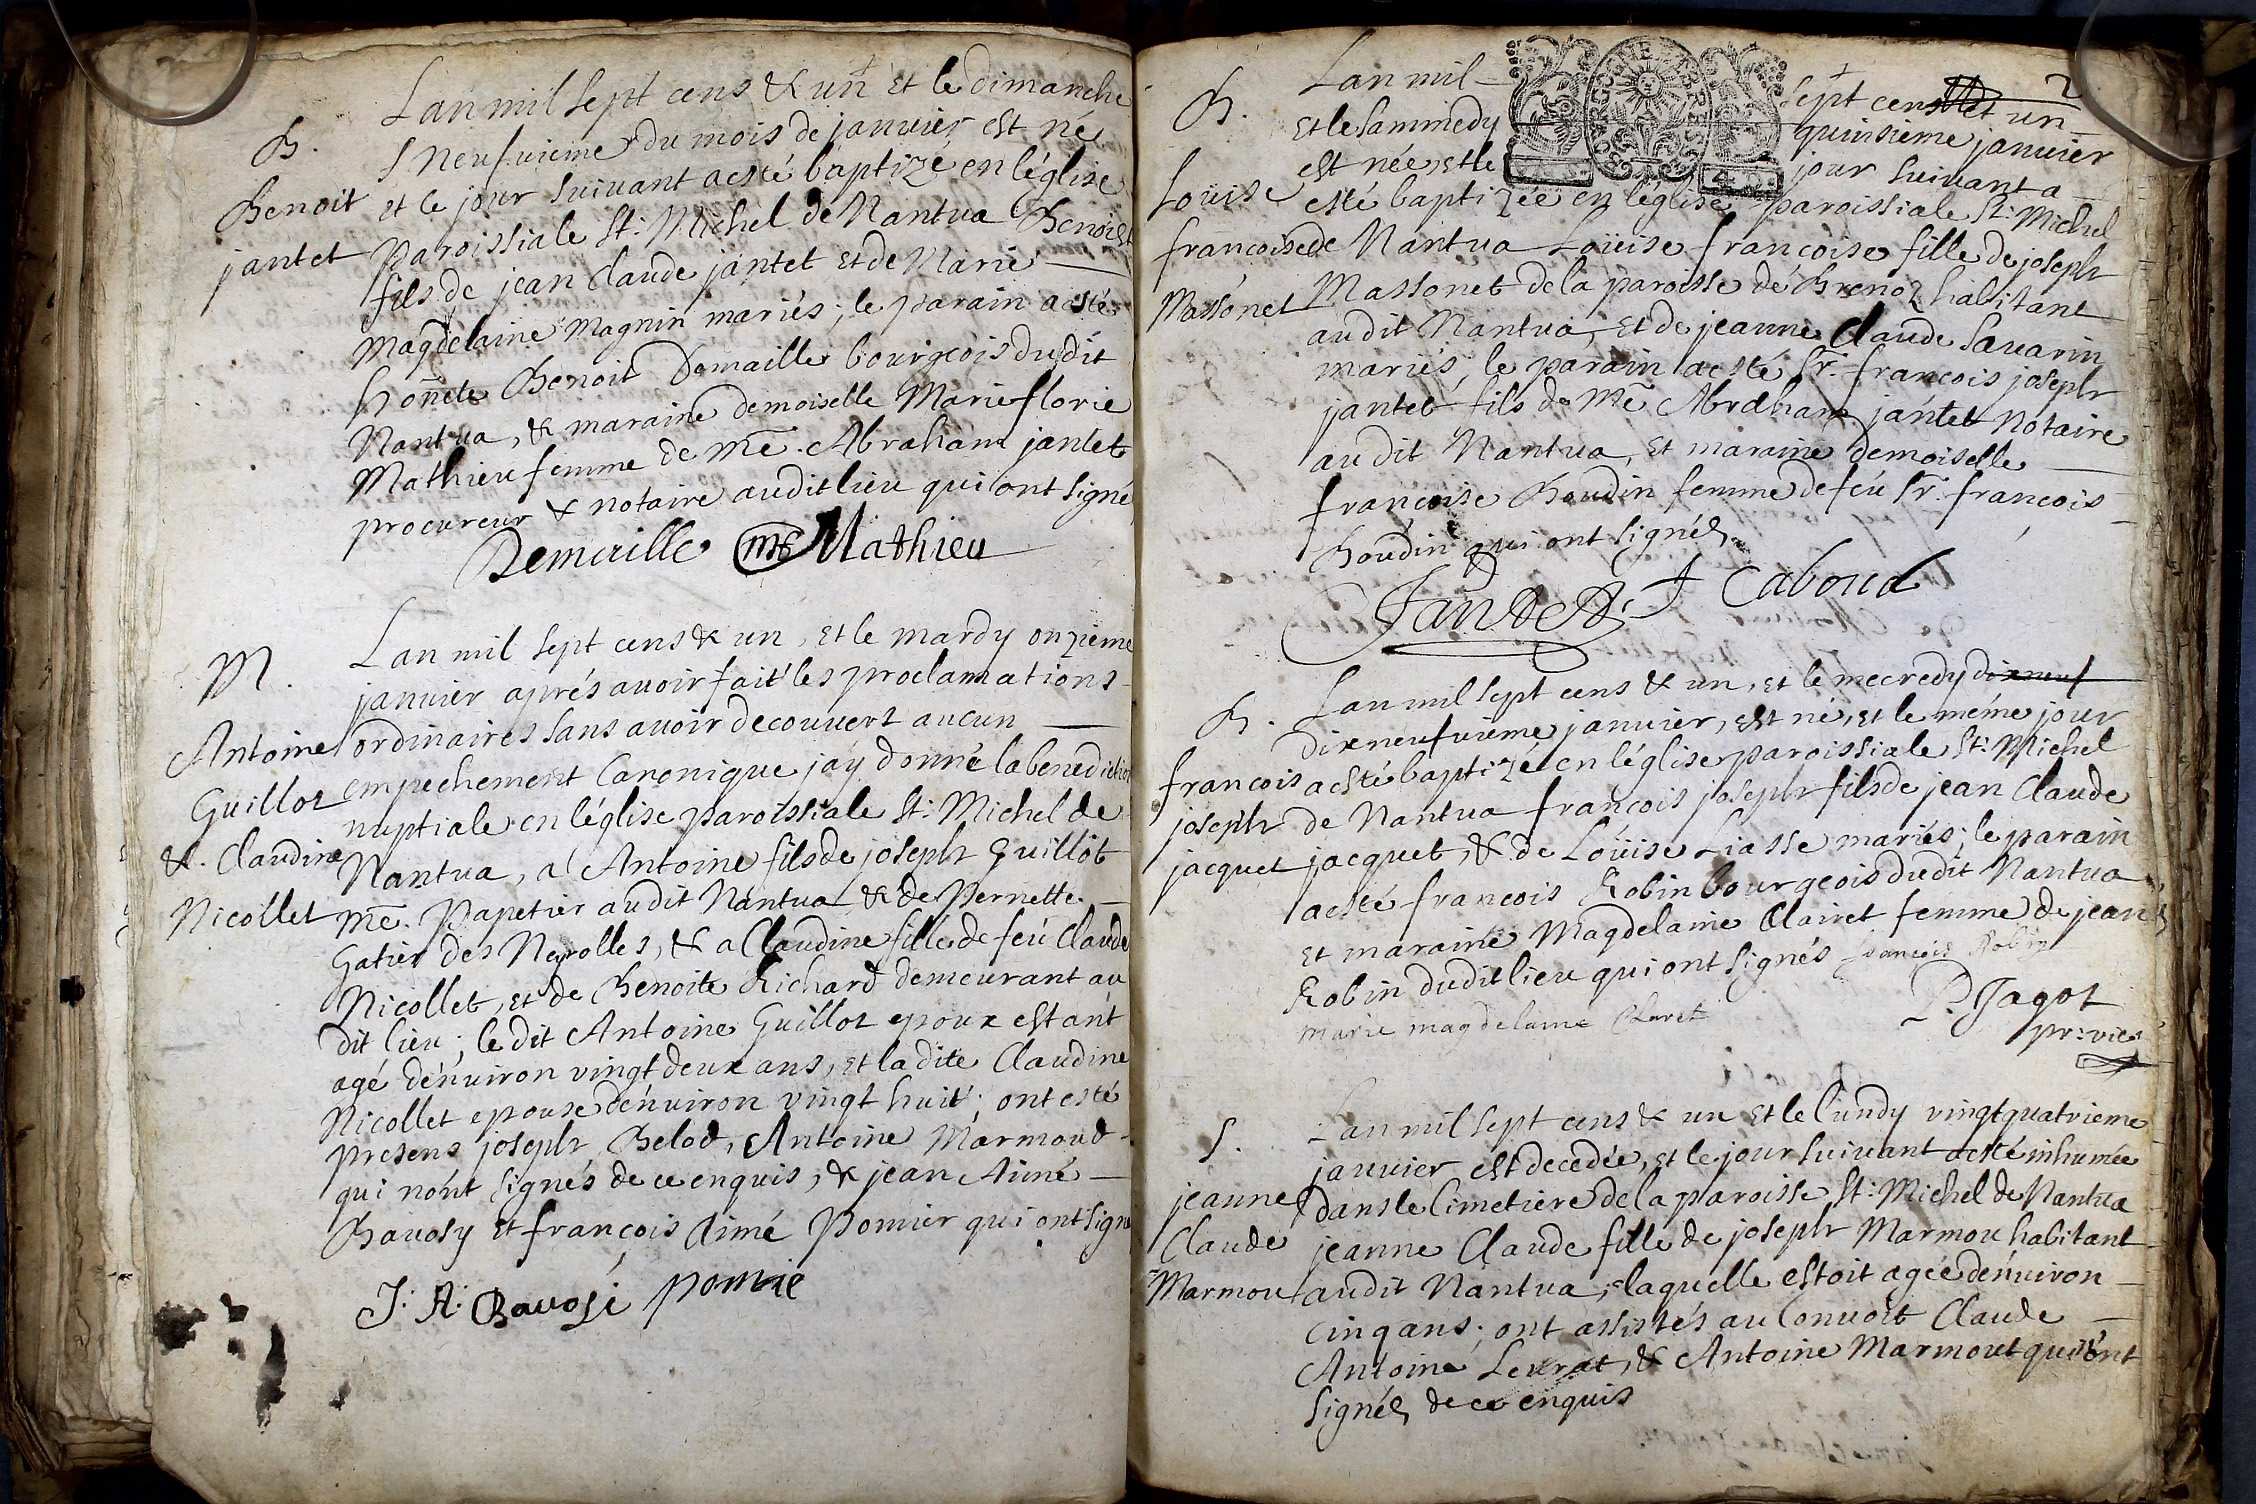 B.
Benoit
jantet
Lan mil sept cens & un et le dimanche
neufuieme du mois de januier est né
et le jour suiuant a esté baptizé en léglise
paroissiale St: Michel de Nantua Benoist
fils de jean Claude jantet et de Marie
Magdelaine Magnin mariés; le parain a esté
honete Benoit Demaille bourgeois dudit
Nantua, & maraine demoiselle Marie florie
Mathieu femme de me. Abraham jantet
procureur & notaire audit lieu qui ont signé
Demaille Mathieu
M.
Antoine
Guillot
&. Claudine
Nicollet
Lan mil sept cens & un, et le mardy onzieme
januier aprés auoir fait les proclamations
ordinaires sans auoir decouuert aucun
empechement Canonique jay donné la benediction
nuptiale en léglise paroissiale St: Michel de
Nantua, a Antoine fils de joseph Guillot
me. Papetier audit Nantua & de Pernette
Gatier des Neyrolles, & a Claudine fille de feu Claude
Nicollet, et de Benoite Richard demeurant au
dit lieu; le dit Antoine Guillot epoux estant
agé dénuiron vingt deux ans, et la dite Claudine
Nicollet epouse dénuiron vingt huit; ont esté
presens joseph Belod, Antoine Marmoud
qui nónt signés de ce enquis, & jean Aimé
Bauosy et francois Aimé Pomier qui ont signé
J: A: Bauosi pomie
2
B.
Loüise
francoise
Massonet
Lan mil sept cens et un
et le sammedy quinsieme januier
est née, et le jour suiuant a
esté baptizée en léglise paroissiale St: Michel
de Nantua Loüise francoise fille de joseph
Massonet de la paroisse de Brenoz habitant
audit Nantua, et de jeanne Claude Sauarin
mariés, le parain a esté Sr. francois joseph
jantet fils de me Abraham jantet Notaire
audit Nantua, et maraine demoiselle
francoise Boudin femme de feu Sr. francois
Boudin qui ont signés
Jantet f Caboud
B.
francois
joseph
jacquet
Lan mil sept cens & un, et le mecredy dixneuf
dixneufuieme januier, est né, et le méme jour
a esté baptizé en léglise paroissiale St: Michel
de Nantua francois joseph fils de jean Claude
jacquet, & de Loüise Liasse mariés; le parain
a esté francois Robin bourgeois dudit Nantua
et maraine Magdelaine Clairet femme de jean
Robin dudit lieu qui ont signés francois Robin
marie magdelaine Claret
P. Jagot
pr: vic:
S.
jeanne
Claude
Marmou
Lan mil sept cens & un et le lundy vingtquatrieme
januier est decedée, et le jour suiuant a esté inhumée
dans le cimetiere de la paroisse St: Michel de Nantua
jeanne Claude fille de joseph Marmou habitant
audit Nantua, laquelle estoit agée dénuiron
cinq ans; ont assistés au Conuoit Claude
Antoine Leurat, & Antoine Marmout qui nónt
signés de ce enquis